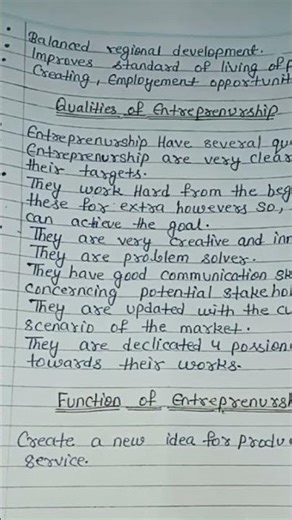 Balanced regional development.
Improves standard of living of p
Creating, Employement opportunit
Qualities of Entreprenurship
Entreprenurship Have several qu
Entreprenurship are very clear
their targets.
They work Hard from the beg
these for extra howevers so,
can achieve the goal.
They are very creative and inn
They are problem solver.
They have good communication sk
concerncing potential stakehol
They are updated with the cu
scenario of the market.
They are declicated & possion
towards their works.
Function of Entreprenursh
Create a new idea for produ
service.